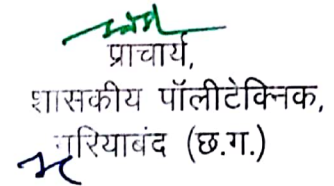 प्राचार्य,
शासकीय पॉलीटेक्निक,
गरियाबंद (छ.ग.)